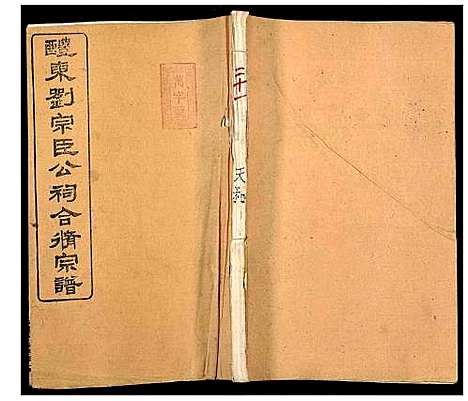 醴東劉宗臣公祠合脩宗譜
二十一